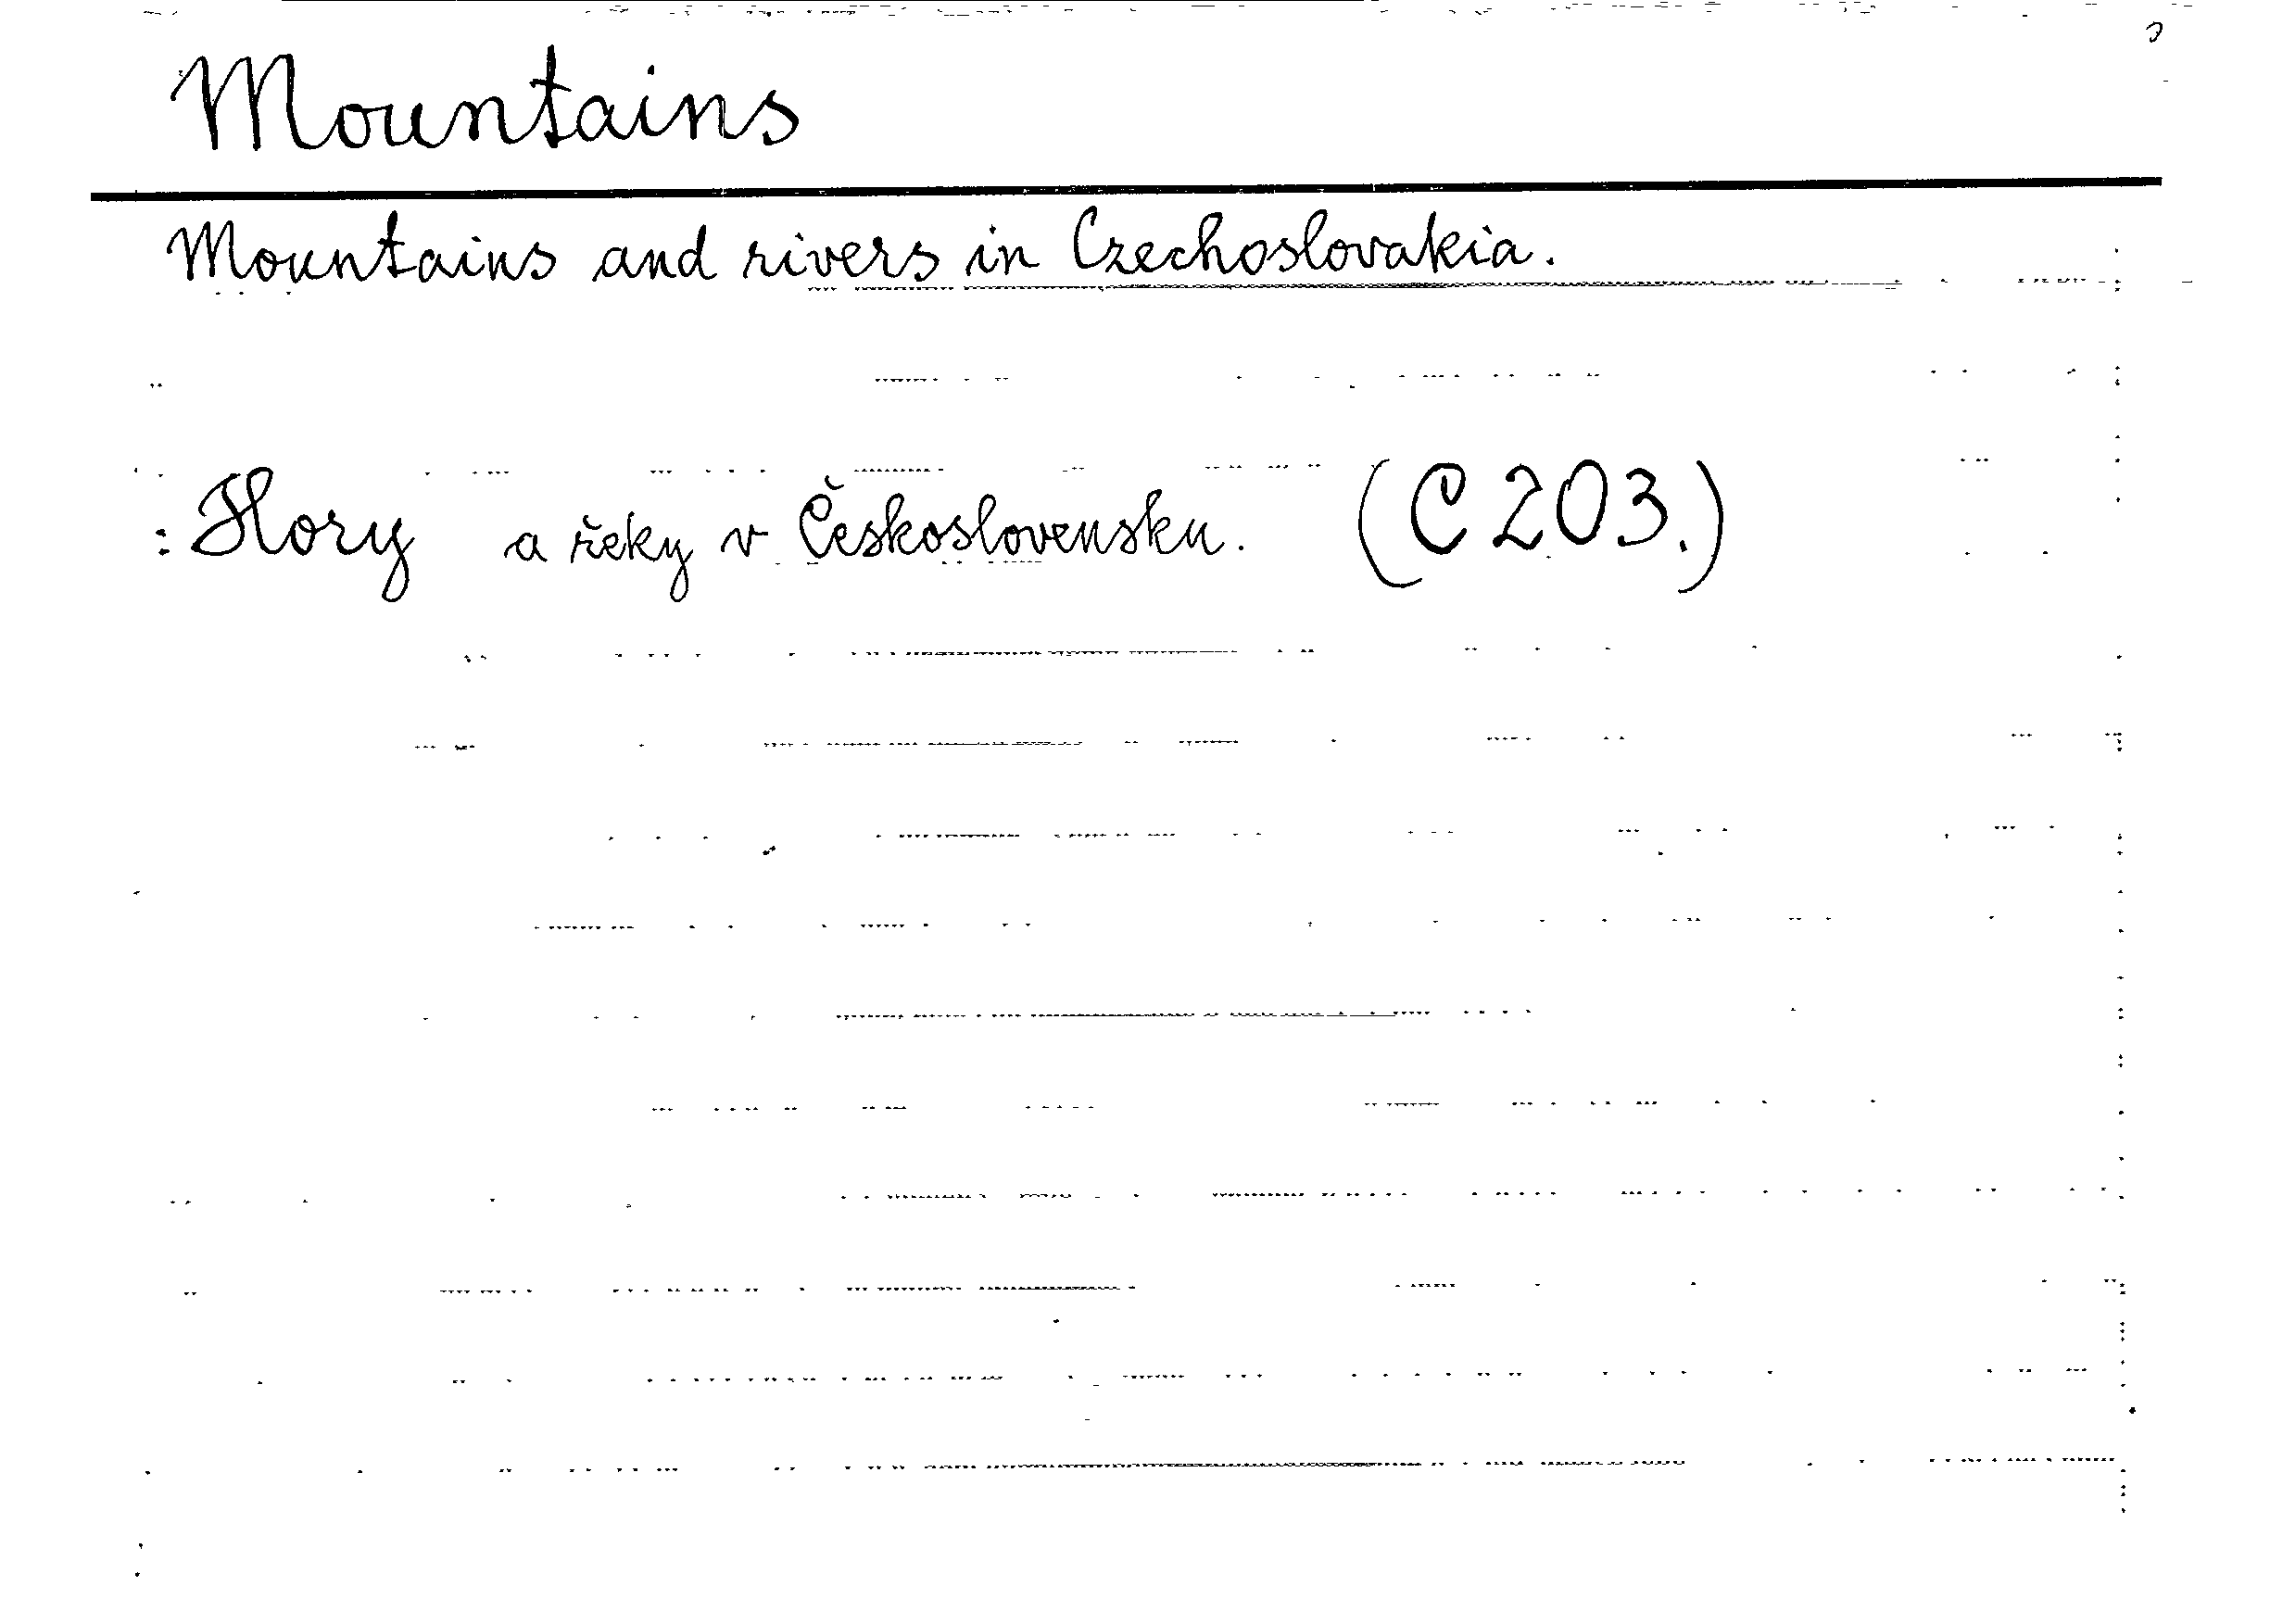 Mountains
Mountains and rivers in Czechoslovakia.
: Hory a řeky v Československu. (C 203.)